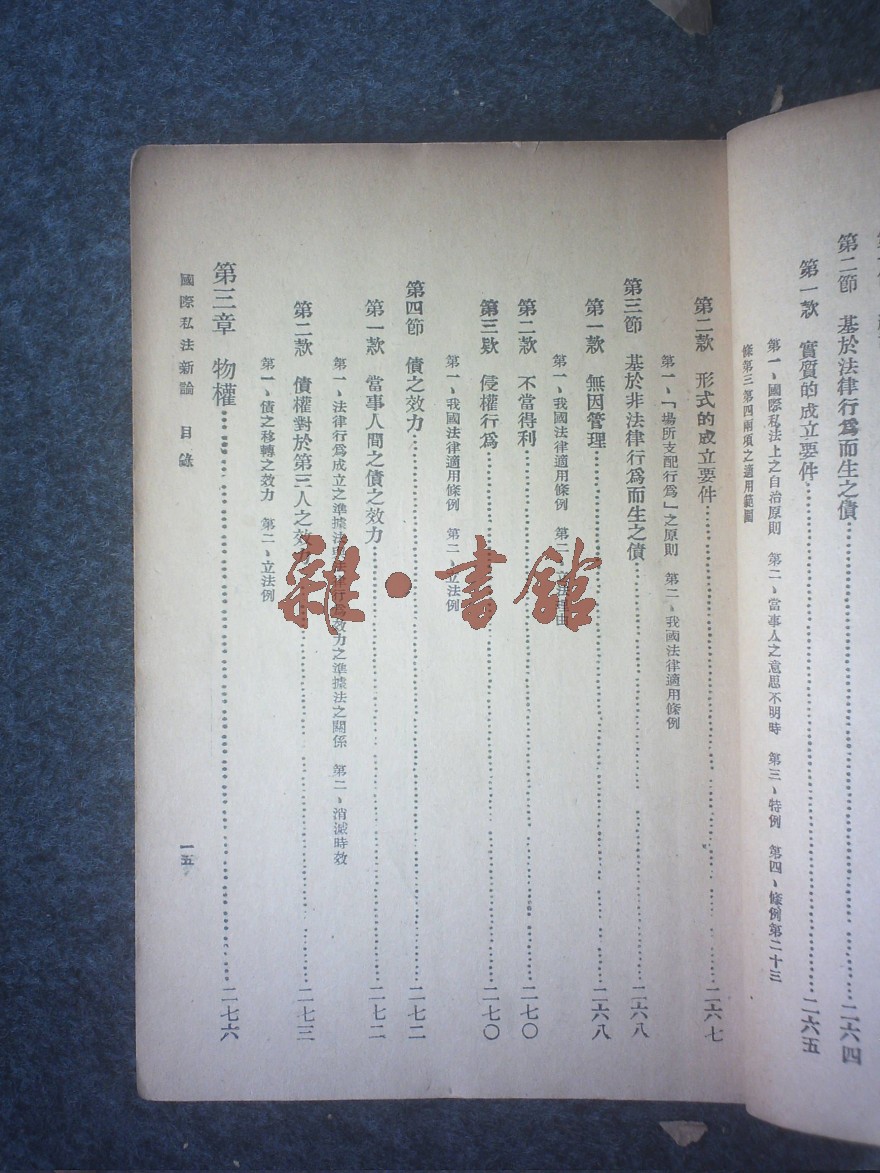 第二節 基於法律行爲而生之債……二六四
第一款 實質的成立要件……二六五
第一、國際私法上之自治原則 第二、當事人之意思不明時 第三、特例 第四、條例第二十三
條第三第四兩項之適用範圍
第二款 形式的成立要件……二六七
第一、「場所支配行爲」之原則 第二、我國法律適用條例
第三節 基於非法律行爲而生之債……二六八
第一款 無因管理……二六八
第一、我國法律適用條例 第二、立法理由
第二款 不當得利……二七〇
第三款 侵權行爲……二七〇
第一、我國法律適用條例 第二、立法例
第四節 債之效力……二七二
第一款 當事人間之債之效力……二七二
第一、法律行爲成立之準據法與法律行爲效力之準據法之關係 第二、消滅時效
第二款 債權對於第三人之效力……二七三
第一、債之移轉之效力 第二、立法例
第三章 物權……二七六
國際私法新論 目錄 一五
雜·書館